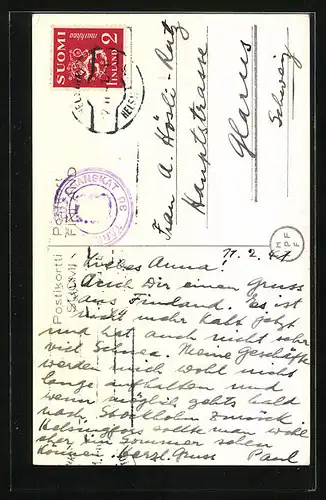 SUOMI
FINLAND
markkaa
2
HELSI
Postikortti
SUOMI
Postkort
FINLAND
TARKASTANUT
GRANSKAT 08
Frau A. Hösli-Rutz
Hauptstrasse
Glarus
Schweiz
11. 2. 41
Liebes Anna!
Auch Dir einen Gruss
aus Finland. Es ist
nicht mehr kalt jetzt
und hat auch nicht sehr
viel Schnee. Meine Geschäfte
werden mich wohl nicht
lange aufhalten und
wenn möglich gehts bald
nach Stockholm zurück.
Helsingfors sollte man wohl
eher im Sommer sehen
können. herzl. Gruss Paul